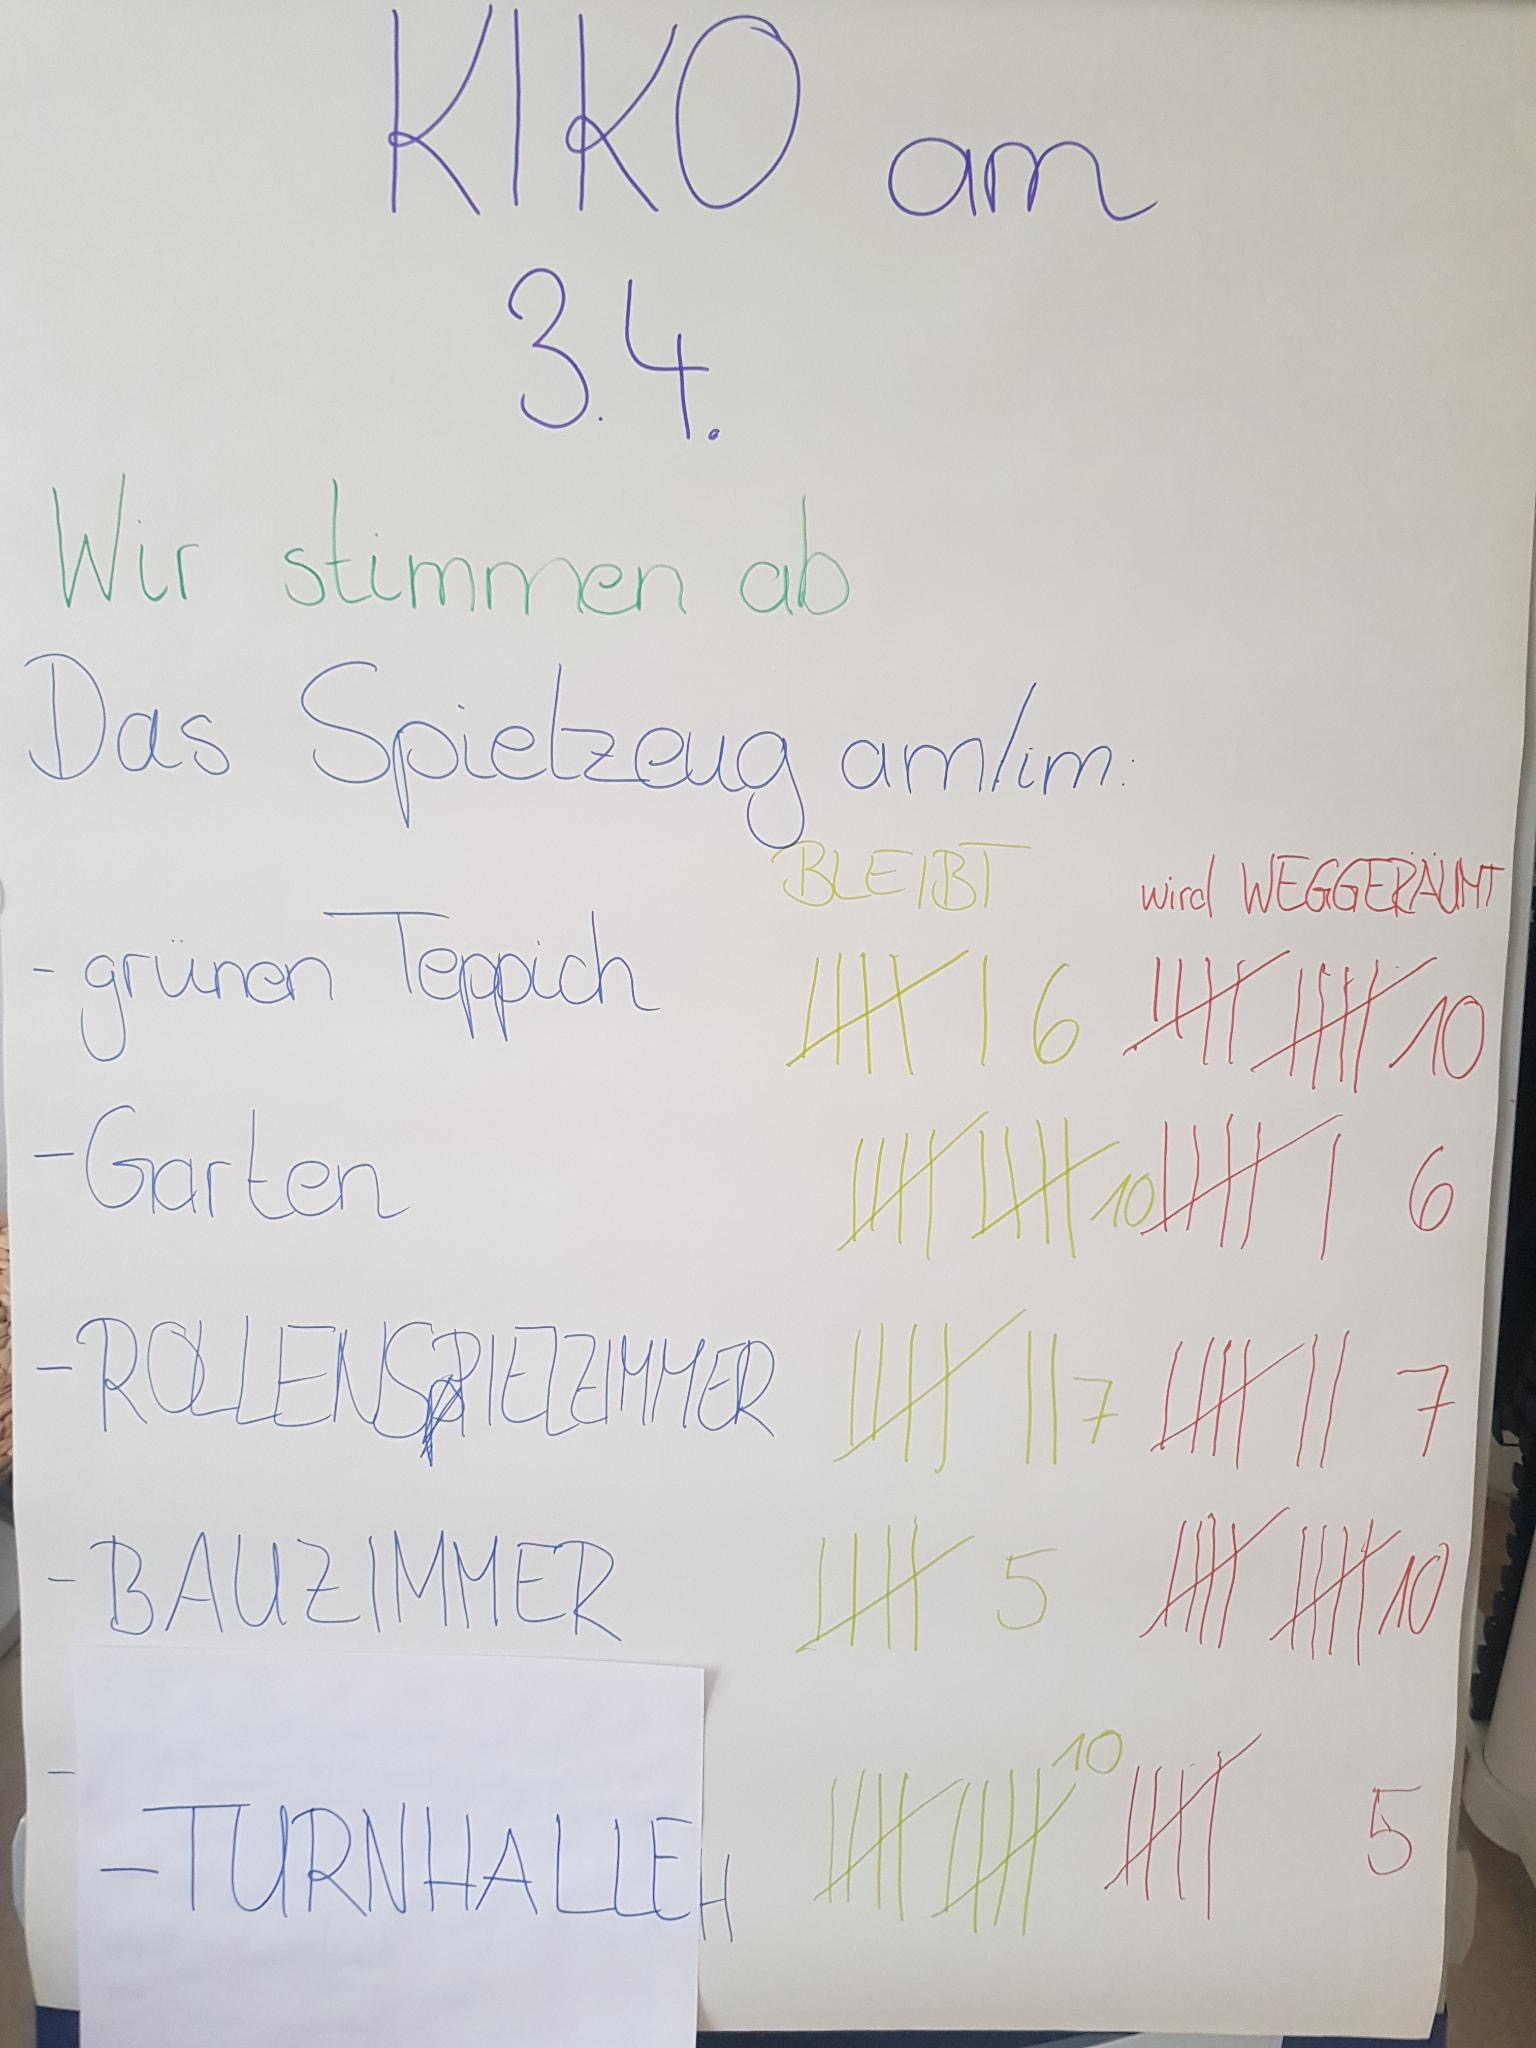 KIKO am
3.4.
Wir stimmen ab
Das Spielzeug am/im:
BLEIBT wird WEGGERÄUMT
- grünen Teppich 6 10
- Garten 10 6
- ROLLENSPIELZIMMER 7 7
- BAUZIMMER 5 10
- TURNHALLE 10 5